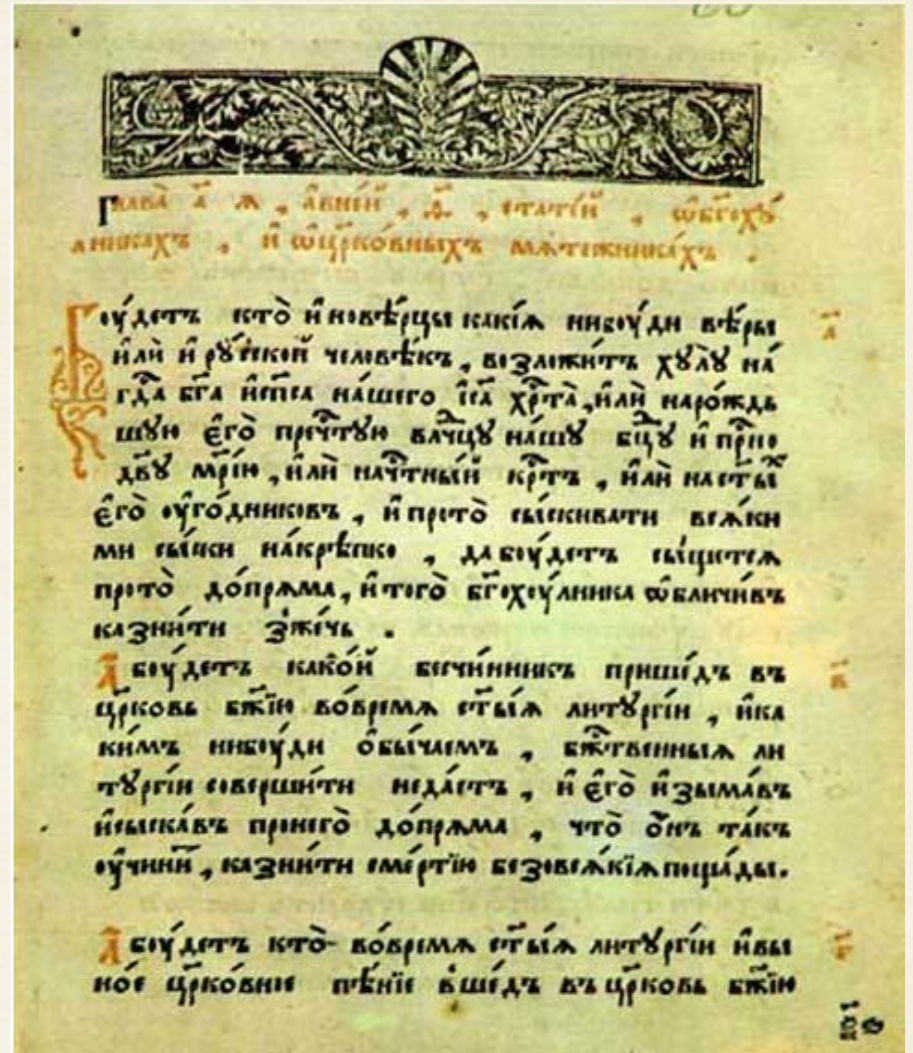 Глава̀ а҃ я , а̀вне́й , ѳ҃ , стате́й , ѡ҆бг҃оху́
лникахъ , и҆ ѡ҆цр҃ко́вныхъ мѧте́жникахъ .
Боу́детъ кто̀ и҆новѣ́рцы какі́ѧ нибоу́ди вѣ́ры
и҆лѝ и҆ рꙋ́сской человѣ́къ , возложи́тъ хꙋлꙋ̀ на́
гдⷭ҇а бг҃а и҆сп҃са на́шего і҆с҃а хрⷭ҇та̀ , и҆лѝ наро́ждь
шꙋю є҆го̀ пречⷭ҇тꙋю влⷣчцꙋ на́шꙋ бцⷣꙋ и҆ прⷭ҇но
дв҃ꙋ мр҃і́ю , и҆лѝ начⷭ҇тны́й крⷭ҇тъ , и҆лѝ наст҃ы́хъ
є҆го̀ оу҆го́дниковъ , и҆ прото̀ сы́скивати всѧ́ки
ми сы́ски на́крѣпко , да боу́детъ сы́щетсѧ
прото̀ до́прѧма , и҆ того̀ бг҃охоу́лника ѡ҆бличи́въ
казни́ти зже́чь .
А҆ боу́детъ како́й бесчи́нникъ прише́дъ въ
цр҃ковь бж҃їю во́времѧ ст҃ы́ѧ литꙋргі́и , и҆ка
ки́мъ нибоу́ди ѻ҆бы́чаемъ , бжⷭ҇твенныѧ ли
тꙋргі́и соверши́ти неда́стъ , и҆ є҆го̀ и҆зыма́въ
и҆сыска́въ пронего̀ до́прѧма , что̀ ѻ҆́нъ та́къ
оу҆чини́тъ , казни́ти сме́ртїю безовсѧ́кїѧ поща́ды .
А҆ боу́детъ кто̀ во́времѧ ст҃ы́ѧ литꙋргі́и и҆вы
но́е цр҃ко́вное пѣ́нїе вше́дъ въ цр҃ковь бж҃їю
а҃
в҃
г҃